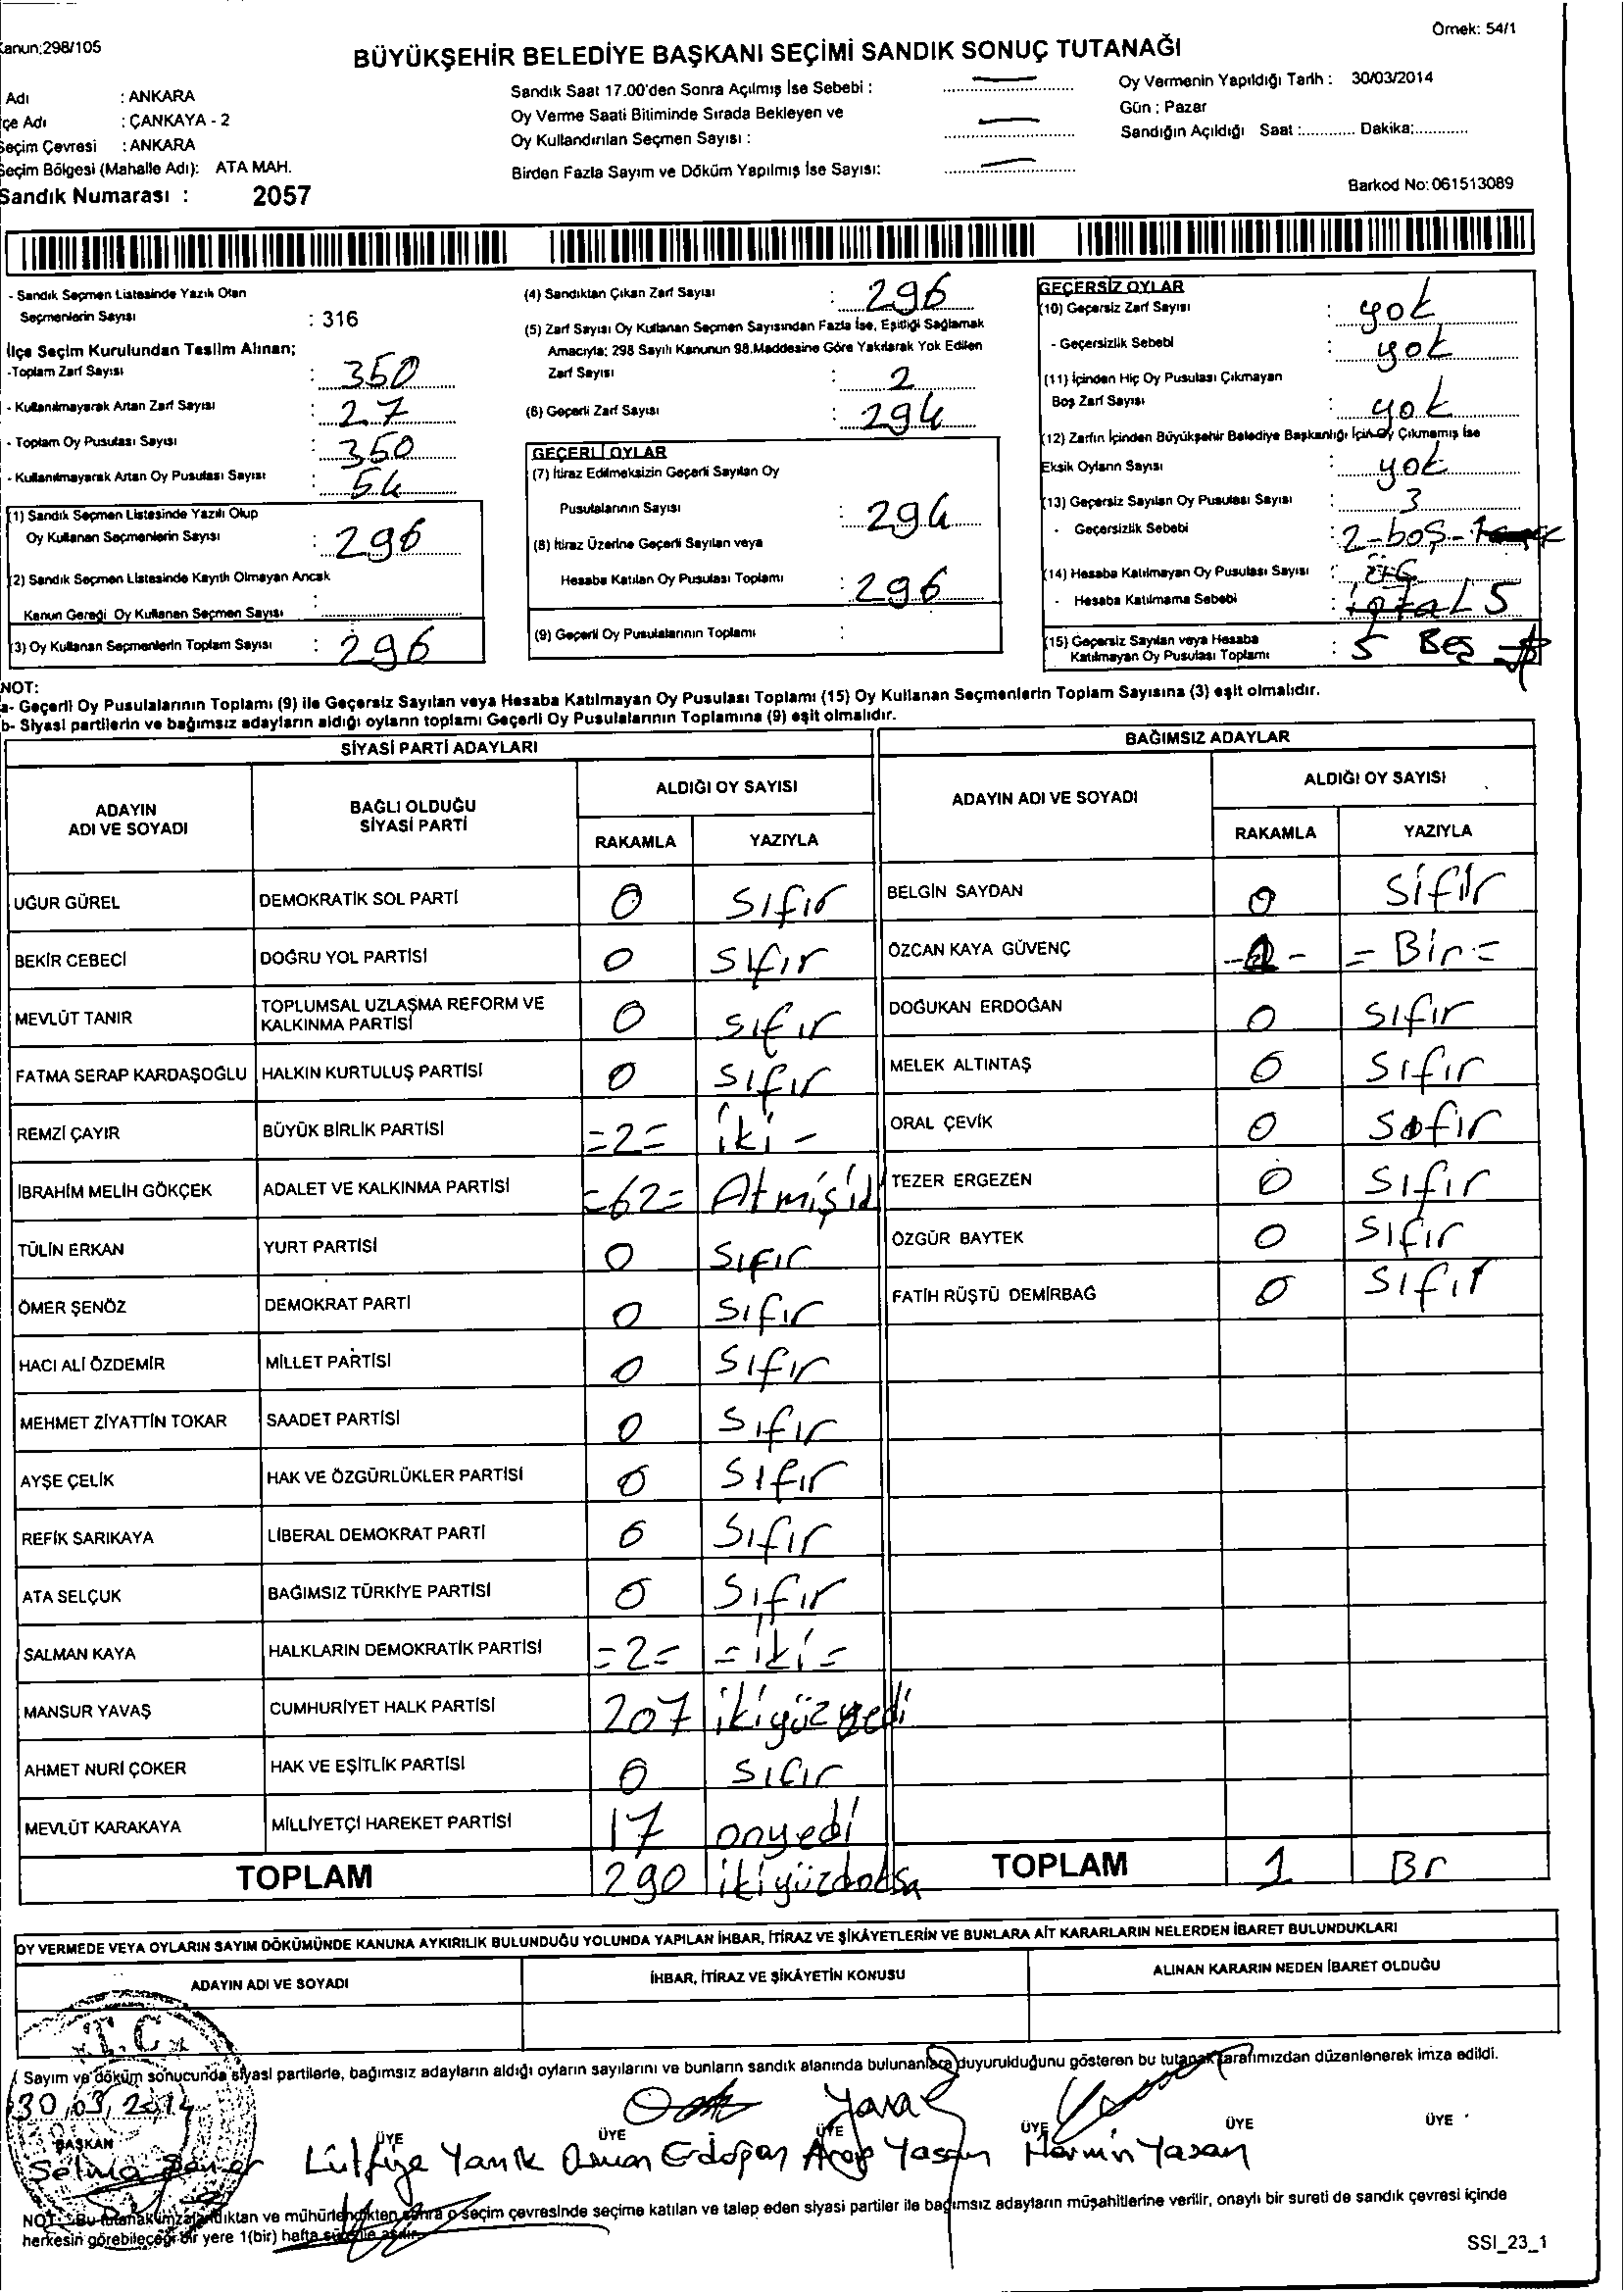 Kanun;298/105
Örnek: 54/1
BÜYÜKŞEHİR BELEDİYE BAŞKANI SEÇİMİ SANDIK SONUÇ TUTANAĞI
Adı : ANKARA
çe Adı : ÇANKAYA - 2
Seçim Çevresi : ANKARA
Seçim Bölgesi (Mahalle Adı): ATA MAH.
Sandık Numarası : 2057
Sandık Saat 17.00'den Sonra Açılmış İse Sebebi :
Oy Verme Saati Bitiminde Sırada Bekleyen ve
Oy Kullandırılan Seçmen Sayısı :
Birden Fazla Sayım ve Döküm Yapılmış İse Sayısı:
Oy Vermenin Yapıldığı Tarih : 30/03/2014
Gün : Pazar
Sandığın Açıldığı Saat :............ Dakika:............
Barkod No: 061513089
- Sandık Seçmen Listesinde Yazılı Olan
Seçmenlerin Sayısı : 316
İlçe Seçim Kurulundan Teslim Alınan;
-Toplam Zarf Sayısı : 350
- Kullanılmayarak Artan Zarf Sayısı : 27
- Toplam Oy Pusulası Sayısı : 350
- Kullanılmayarak Artan Oy Pusulası Sayısı : 54
(1) Sandık Seçmen Listesinde Yazılı Olup
Oy Kullanan Seçmenlerin Sayısı : 296
(2) Sandık Seçmen Listesinde Kayıtlı Olmayan Ancak
Kanun Gereği Oy Kullanan Seçmen Sayısı :
(3) Oy Kullanan Seçmenlerin Toplam Sayısı : 296
(4) Sandıktan Çıkan Zarf Sayısı : 296
(5) Zarf Sayısı Oy Kullanan Seçmen Sayısından Fazla İse, Eşitliği Sağlamak
Amacıyla; 298 Sayılı Kanunun 98.Maddesine Göre Yakılarak Yok Edilen
Zarf Sayısı : 2
(6) Geçerli Zarf Sayısı : 294
GEÇERLİ OYLAR
(7) İtiraz Edilmeksizin Geçerli Sayılan Oy
Pusulalarının Sayısı : 294
(8) İtiraz Üzerine Geçerli Sayılan veya
Hesaba Katılan Oy Pusulası Toplamı : 296
(9) Geçerli Oy Pusulalarının Toplamı :
GEÇERSİZ OYLAR
(10) Geçersiz Zarf Sayısı : yok
- Geçersizlik Sebebi : yok
(11) İçinden Hiç Oy Pusulası Çıkmayan
Boş Zarf Sayısı : yok
(12) Zarfın İçinden Büyükşehir Belediye Başkanlığı İçin Oy Çıkmamış İse
Eksik Oyların Sayısı : yok
(13) Geçersiz Sayılan Oy Pusulası Sayısı : 3
- Geçersizlik Sebebi : 2-boş-
(14) Hesaba Katılmayan Oy Pusulası Sayısı :
- Hesaba Katılmama Sebebi : 5
(15) Geçersiz Sayılan veya Hesaba
Katılmayan Oy Pusulası Toplamı : 5 Beş
NOT:
a- Geçerli Oy Pusulalarının Toplamı (9) ile Geçersiz Sayılan veya Hesaba Katılmayan Oy Pusulası Toplamı (15) Oy Kullanan Seçmenlerin Toplam Sayısına (3) eşit olmalıdır.
b- Siyasi partilerin ve bağımsız adayların aldığı oyların toplamı Geçerli Oy Pusulalarının Toplamına (9) eşit olmalıdır.
SİYASİ PARTİ ADAYLARI
ADAYIN ADI VE SOYADI
BAĞLI OLDUĞU SİYASİ PARTİ
ALDIĞI OY SAYISI
RAKAMLA YAZIYLA
UĞUR GÜREL DEMOKRATİK SOL PARTİ 0 Sıfır
BEKİR CEBECİ DOĞRU YOL PARTİSİ 0 Sıfır
MEVLÜT TANIR TOPLUMSAL UZLAŞMA REFORM VE KALKINMA PARTİSİ 0 Sıfır
FATMA SERAP KARDAŞOĞLU HALKIN KURTULUŞ PARTİSİ 0 Sıfır
REMZİ ÇAYIR BÜYÜK BİRLİK PARTİSİ =2= iki -
İBRAHİM MELİH GÖKÇEK ADALET VE KALKINMA PARTİSİ =62= Atmış
TÜLİN ERKAN YURT PARTİSİ 0 Sıfır
ÖMER ŞENÖZ DEMOKRAT PARTİ 0 Sıfır
HACI ALİ ÖZDEMİR MİLLET PARTİSİ 0 Sıfır
MEHMET ZİYATTİN TOKAR SAADET PARTİSİ 0 Sıfır
AYŞE ÇELİK HAK VE ÖZGÜRLÜKLER PARTİSİ 0 Sıfır
REFİK SARIKAYA LİBERAL DEMOKRAT PARTİ 0 Sıfır
ATA SELÇUK BAĞIMSIZ TÜRKİYE PARTİSİ 0 Sıfır
SALMAN KAYA HALKLARIN DEMOKRATİK PARTİSİ =2= =iki=
MANSUR YAVAŞ CUMHURİYET HALK PARTİSİ 207 ikiyüzyedi
AHMET NURİ ÇOKER HAK VE EŞİTLİK PARTİSİ 0 Sıfır
MEVLÜT KARAKAYA MİLLİYETÇİ HAREKET PARTİSİ 17 onyedi
TOPLAM 290 ikiyüzdoksa
BAĞIMSIZ ADAYLAR
ADAYIN ADI VE SOYADI
ALDIĞI OY SAYISI
RAKAMLA YAZIYLA
BELGİN SAYDAN 0 Sıfır
ÖZCAN KAYA GÜVENÇ -1- =Bir=
DOĞUKAN ERDOĞAN 0 Sıfır
MELEK ALTINTAŞ 0 Sıfır
ORAL ÇEVİK 0 Sıfır
TEZER ERGEZEN 0 Sıfır
ÖZGÜR BAYTEK 0 Sıfır
FATİH RÜŞTÜ DEMİRBAĞ 0 Sıfır
TOPLAM 1 Br
OY VERMEDE VEYA OYLARIN SAYIM DÖKÜMÜNDE KANUNA AYKIRILIK BULUNDUĞU YOLUNDA YAPILAN İHBAR, İTİRAZ VE ŞİKÂYETLERİN VE BUNLARA AİT KARARLARIN NELERDEN İBARET BULUNDUKLARI
ADAYIN ADI VE SOYADI İHBAR, İTİRAZ VE ŞİKÂYETİN KONUSU ALINAN KARARIN NEDEN İBARET OLDUĞU
T.C.
Sayım ve döküm sonucunda siyasi partilerle, bağımsız adayların aldığı oyların sayılarını ve bunların sandık alanında bulunanlara duyurulduğunu gösteren bu tutanak tarafımızdan düzenlenerek imza edildi.
30,03,2014
BAŞKAN ÜYE ÜYE ÜYE ÜYE ÜYE ÜYE
Selma Lütfiye Yanık Osman Erdoğan Arap Yaşar Nermin Yazan
NOT: Bu tutanak imzalandıktan ve mühürlendikten sonra o seçim çevresinde seçime katılan ve talep eden siyasi partiler ile bağımsız adayların müşahitlerine verilir, onaylı bir sureti de sandık çevresi içinde
herkesin görebileceği bir yere 1(bir) hafta süre ile asılır.
SSI_23_1